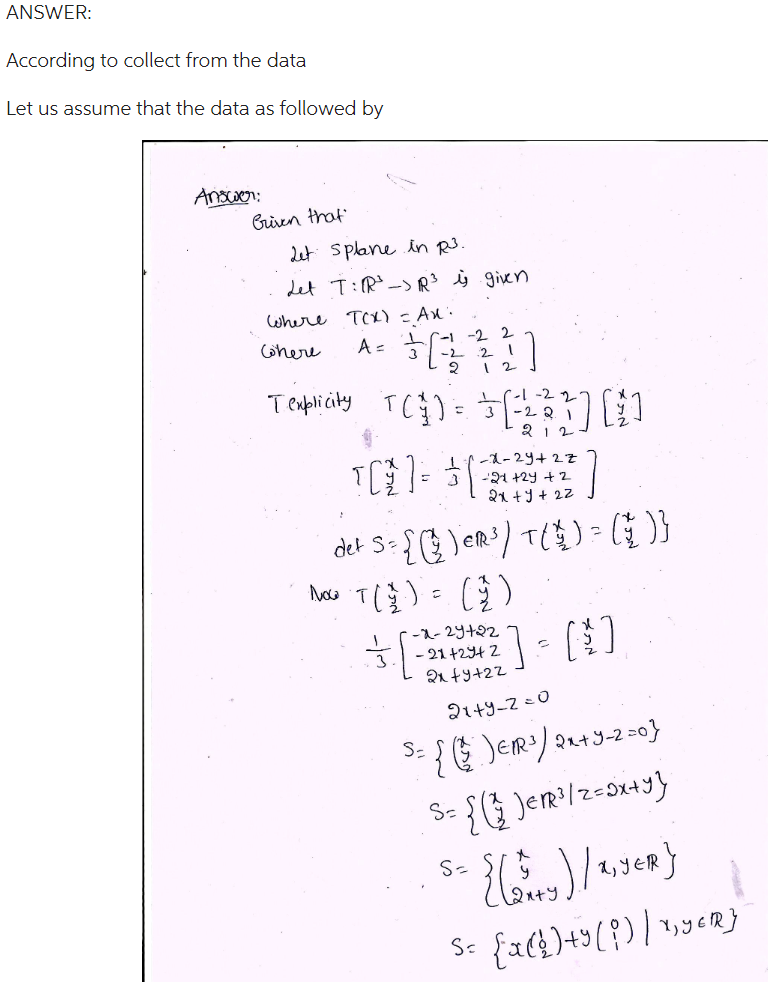 ANSWER:
According to collect from the data
Let us assume that the data as followed by
Answer:
Given that
Let S plane in R³.
Let T: R³ → R³ is given
where T(x) = Ax.
where A = 1/3 [-1 -2 2; -2 2 1; 2 1 2]
T explicity T(x y z) = 1/3 [-1 -2 2; -2 2 1; 2 1 2] [x y z]
T[x y z] = 1/3 [-x-2y+2z; -2x+2y+z; 2x+y+2z]
let S = {(x y z) ∈ R³ / T(x y z) = (x y z)}
Now T(x y z) = (x y z)
1/3 [-x-2y+2z; -2x+2y+z; 2x+y+2z] = [x y z]
2x+y-z=0
S= {(x y z) ∈ R³ / 2x+y-z=0}
S= {(x y z) ∈ R³ | z=2x+y}
S= {(x y 2x+y) / x,y ∈ R}
S= {x(1 0 2)+y(0 1 1) | x,y ∈ R}